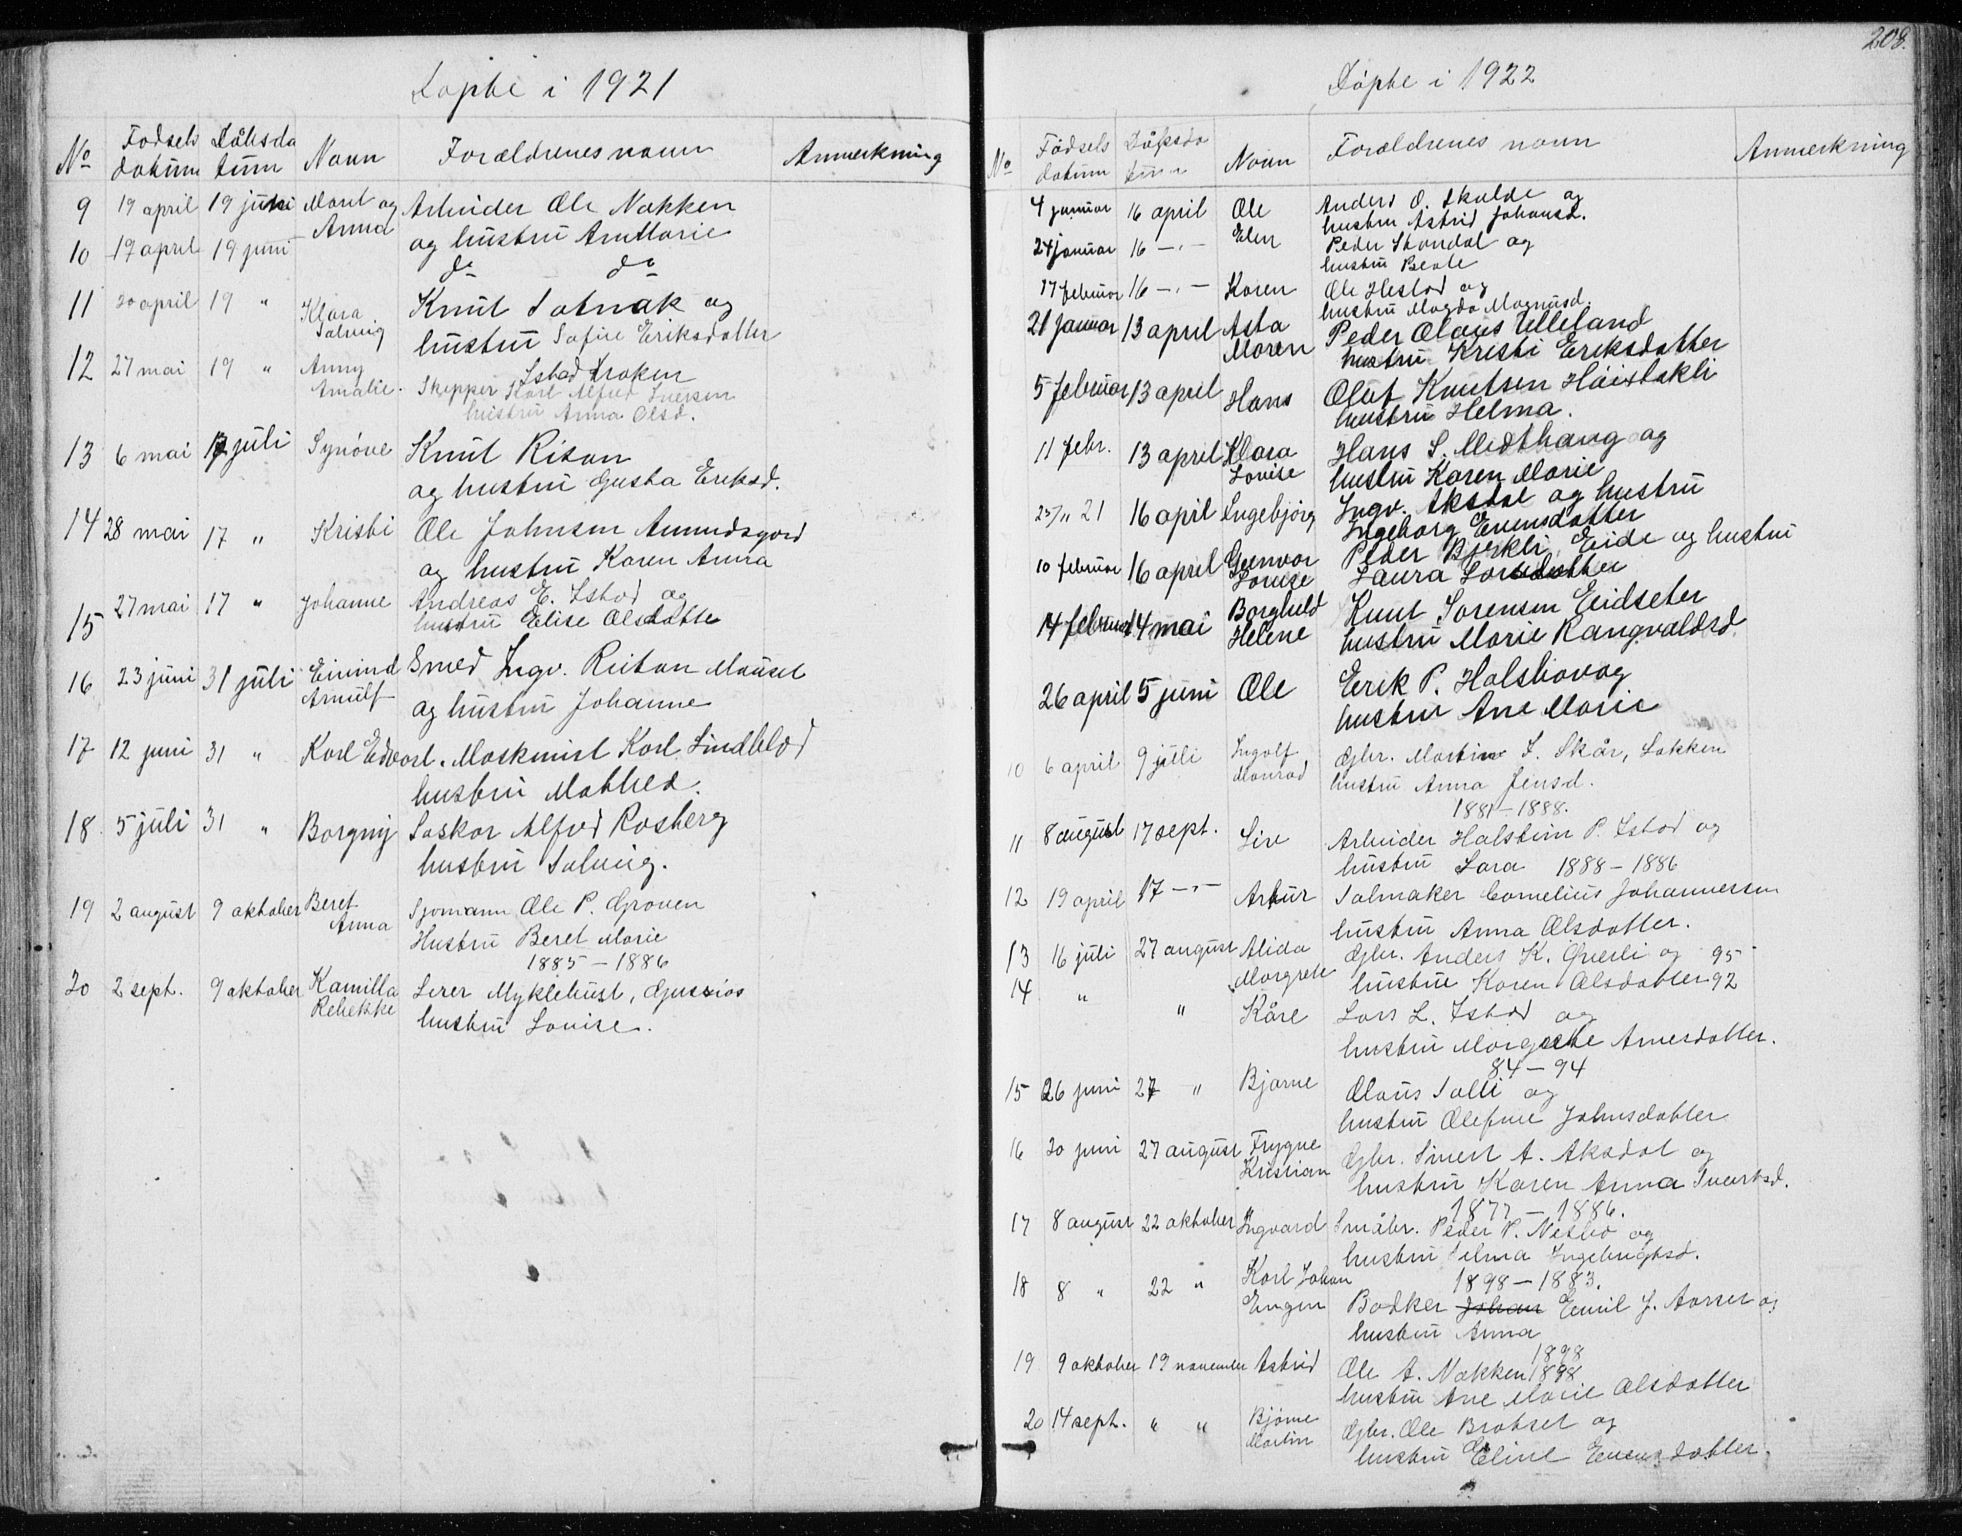 Døpte i 1921
No Fødsels datum Dåbsda tum Navn Forældrenes navn Anmerkning
9 19 april 19 juni Marit og Arbeider Ole Nakken
Anna og hustru Ane Marie
10 19 april 19 juni do do
11 20 april 19 " Klara Knut Solnak og
Solveig hustru Sofie Eriksdatter
12 27 mai 19 " Anny Istad Kroken
Amalie. Skipper Karl Alfred Iversen
hustru Anna Olsd.
13 6 mai 17 juli Synøve Knut Ritan
og hustru Gusta Eriksd.
14 28 mai 17 " Kristi Ole Johnsen Amundsgård
og hustru Karen Anna
15 27 mai 17 " Johanne Andreas E. Istad og
hustru Elise Olsdatte
16 23 juni 31 juli Eivind Smed Ingv. Ritan Mauset
Arnulf og hustru Johanne
17 12 juni 31 " Karl Edvart. Maskinist Karl Lindblad
hustru Mathea.
18. 5 juli 31 " Borgny Oskar Alfred Rosberg
hustru Solveig.
19 2 august 9 oktober Beret Sjømann Ole P. Groven
Anna Hustru Beret Marie
1885 - 1886
20 2 sept. 9 oktober Kamilla Myklebust,
Rebekke hustru Lovise.
208.
Døpte i 1922
No Fødsels datum Dåpsda tum Navn Forældrenes navn Anmerkning
4 januar 16 april Ole Anders O. Skalde og
hustru Astrid Johansd.
24 januar 16 -"- Elen Peder Strandal og
hustru Beate
17 februar 16 -"- Karen Ole Hestad og
hustru Magda Magnusd.
21 Januar 13 april Asta Peder Olaus Ulleland
Maren hustru Kristi Eriksdatter
5 februar 13 april Hans Oluf Knutsen Høistakli
hustru Helma.
11 febr. 13 april Klara Hans S. Midthaug og
Lovise hustru Karen Marie
25/11 21 16 april Ingebjørg Ingv. Aksdal og hustru
Ingeborg Evensdatter
10 februar 16 april Gunvor Peder Bjerkli, Eide og hustru
Lovise Laura Larsdatter
14 februar 14 mai Borghild Knut Sørensen Eidseter
Helene hustru Marie Rangvaldsd.
26 april 5 juni Ole Erik P. Halshovag
hustru Ane Marie
10 6 april 9 juli Ingolf Gbr. Martin I. Skår, Løkken
Konrad hustru Anna Jensd.
1881 - 1888.
11 8 august 17 sept. Siv Arbeider Halstein P. Istad og
hustru Lara 1888 - 1886
12 19 april 17 -"- Artur Salmaker Cornelius Johannessen
hustru Anna Olsdatter.
13 16 juli 27 august Alida Gbr. Anders K. Øverli og 95
Margrete hustru Karen Olsdatter 92
14 " " Kåre Lars L. Istad og
hustru Margrethe Arnesdatter.
84 - 94
15 26 juni 27 " Bjarne Olaus Solli og
hustru Olefine Johnsdatter
16 20 juni 27 august Trygve Gbr. Sivert A. Aksdal og
Kristian hustru Karen Anna Sivertsd.
1877 - 1886.
17 8 august 22 oktober Ingvard Småbr. Peder P. Nesbø og
hustru Selma Ingebrigtsd.
1898 - 1883.
18 8 " 22 " Karl Johan
Eugen Bødker Johan Emil J. Aarset og
hustru Anna
1898
19 9 oktober 19 november Astrid Ole A. Nakken 1898
hustru Ane Marie Olsdatter
20 14 sept. " " Bjarne Gbr. Ole Brokset og
Martin hustru Eline Evensdatter.